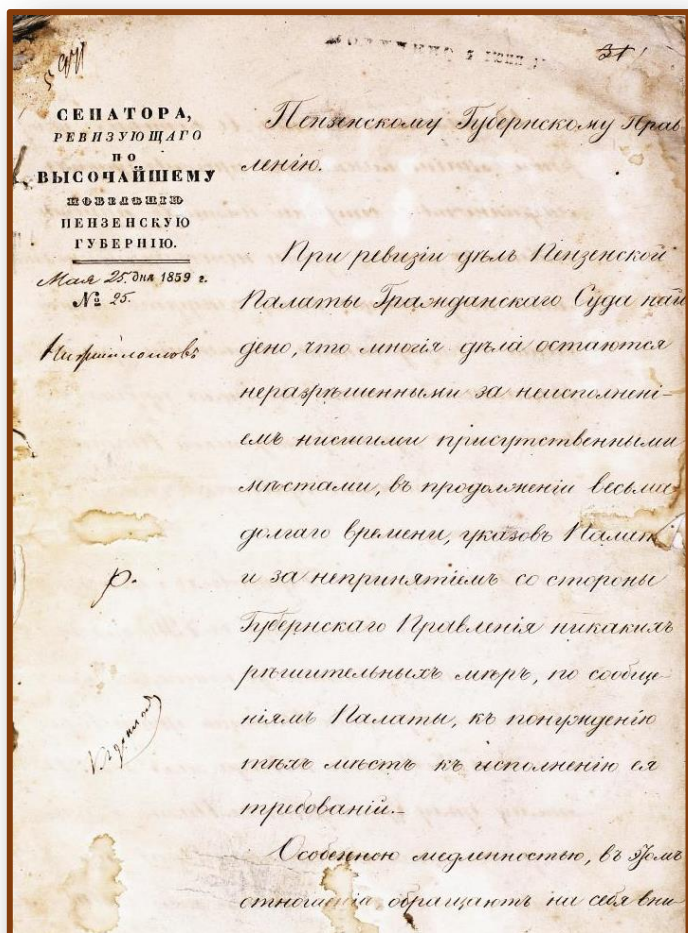 31
СЕНАТОРА,
РЕВИЗУЮЩАГО
ПО
ВЫСОЧАЙШЕМУ
ПОВЕЛѢНІЮ
ПЕНЗЕНСКУЮ
ГУБЕРНІЮ.
Мая 25 дня 1859 г.
№ 25.
Пензенскому Губернскому Прав-
ленію.
При ревизіи дѣлъ Пензенской
Палаты Гражданскаго Суда най-
дено, что многія дѣла остаются
неразрѣшенными за неисполнені-
емъ нисшими присутственными
мѣстами, въ продолженіи весьма
долгаго времени, указовъ Палаты
и за непринятіемъ со стороны
Губернскаго Правленія никакихъ
рѣшительныхъ мѣръ, по сообще-
ніямъ Палаты, къ понужденію
тѣхъ мѣстъ къ исполненію ея
требованій.-
Особенною медленностью, въ этомъ
отношеніи обращаютъ на себя вни-
р.